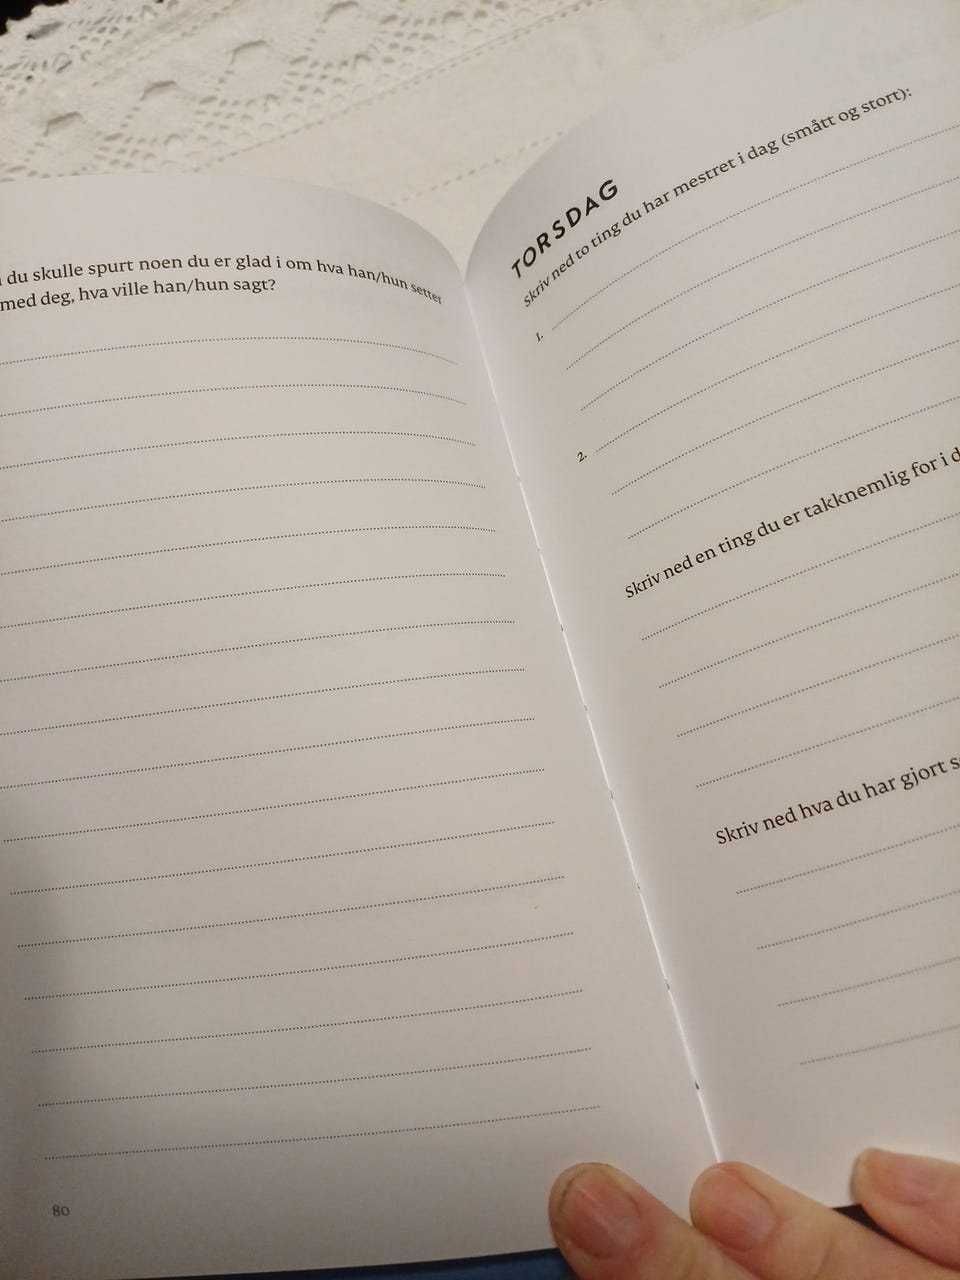 du skulle spurt noen du er glad i om hva han/hun setter
med deg, hva ville han/hun sagt?
80
TORSDAG
Skriv ned to ting du har mestret i dag (smått og stort):
1.
2.
Skriv ned en ting du er takknemlig for i
Skriv ned hva du har gjort